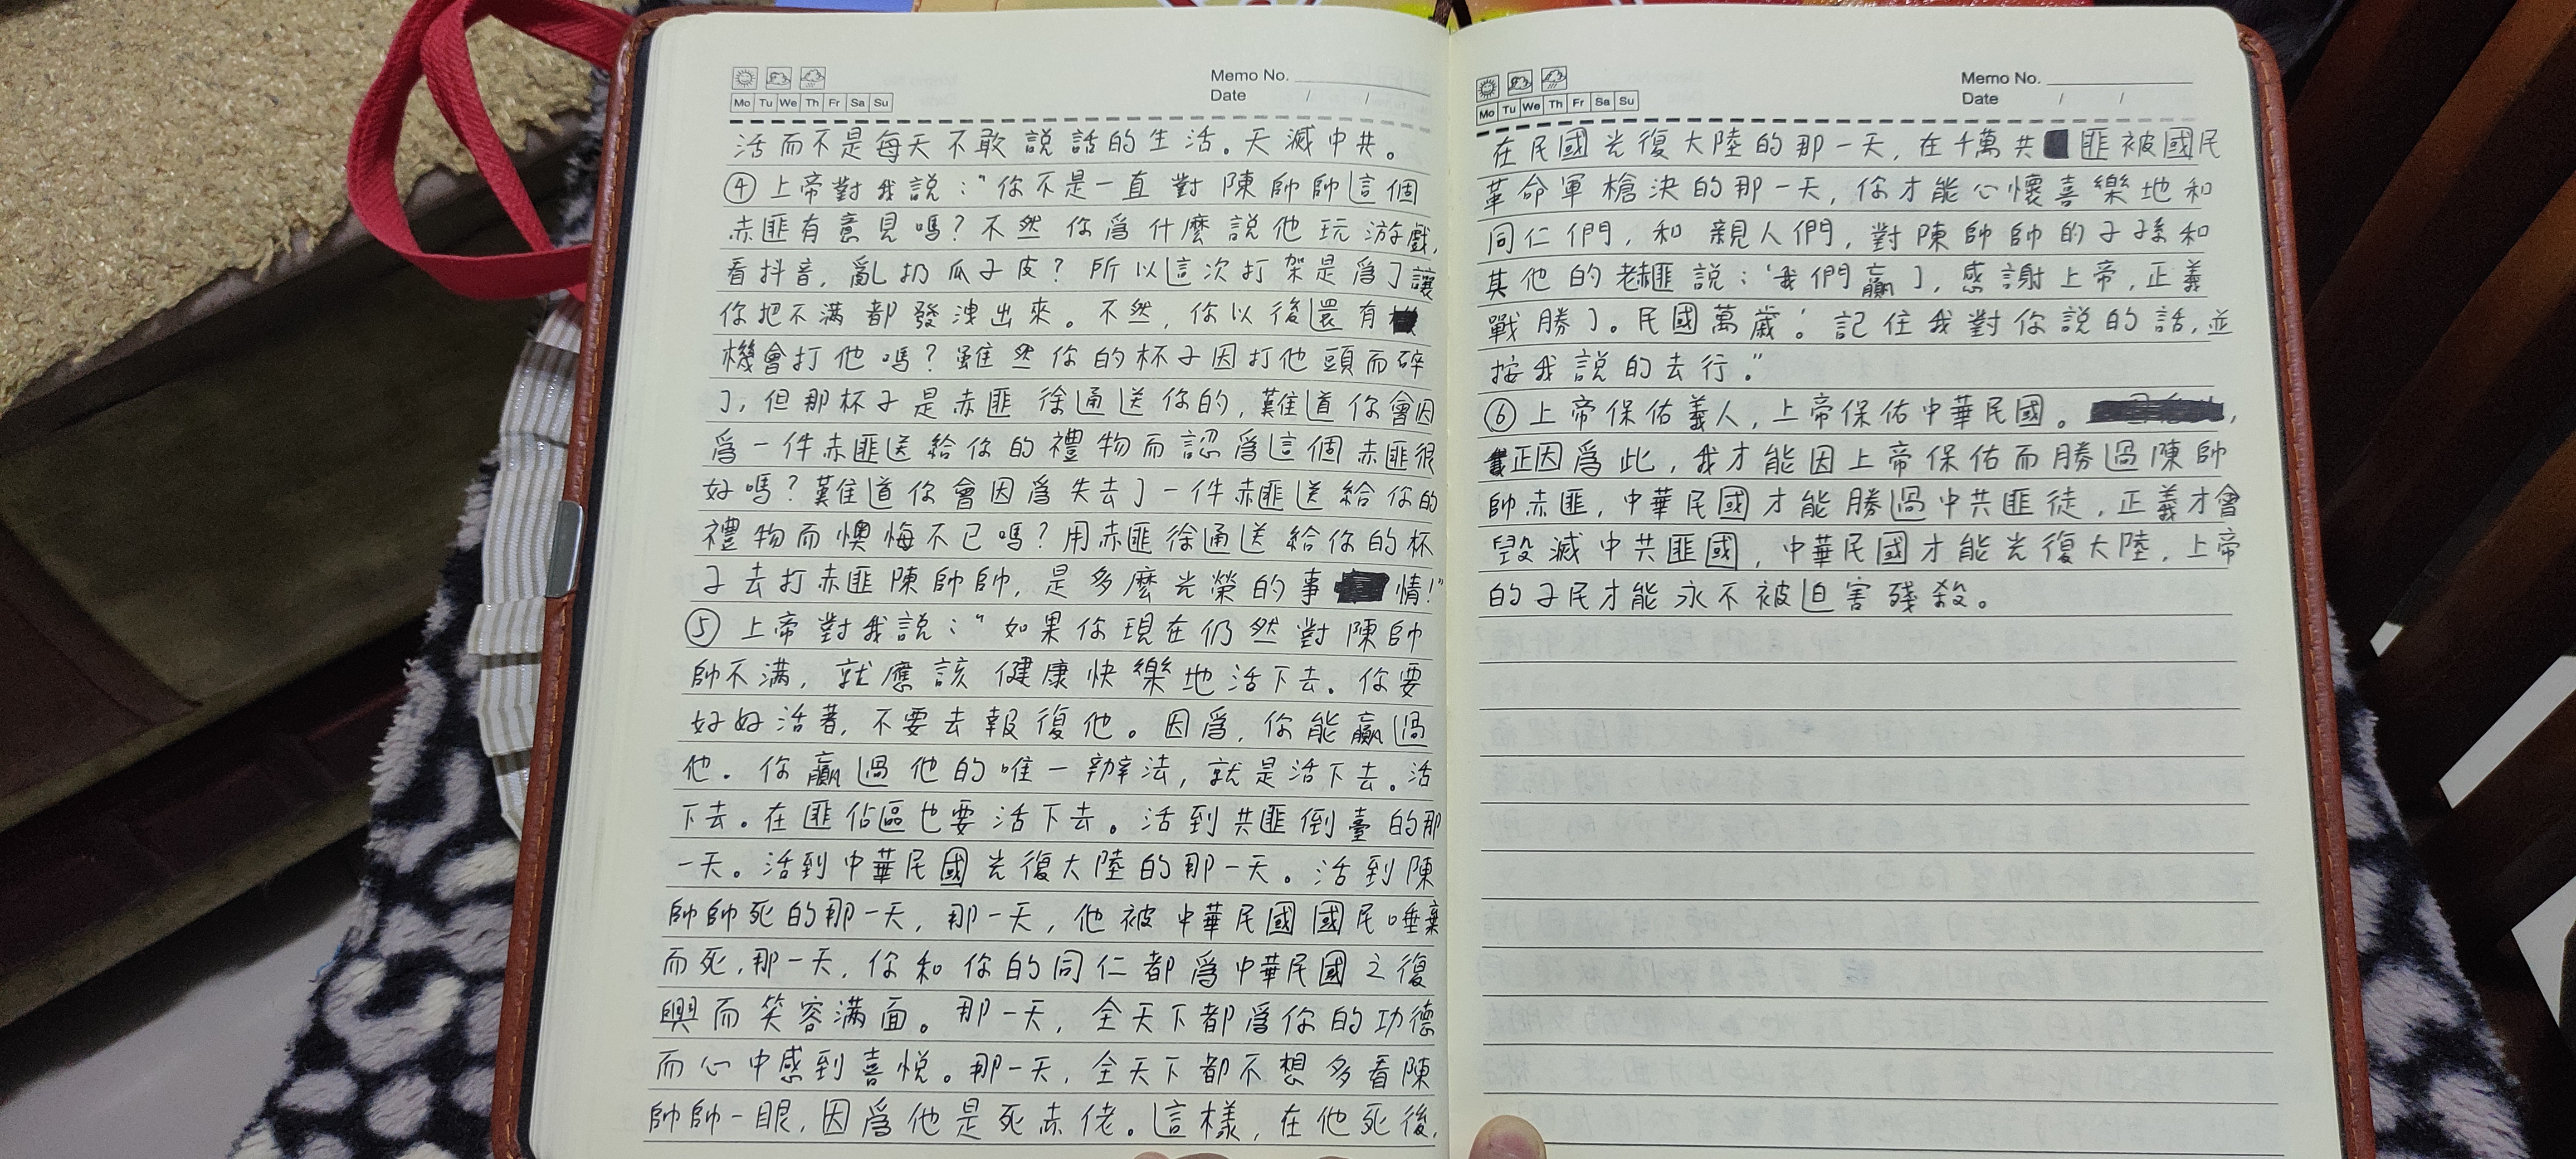 Memo No.
Date / /
Mo Tu We Th Fr Sa Su
活而不是每天不敢説話的生活。天滅中共。
④上帝對我説：“你不是一直對陳帥帥這個
赤匪有意見嗎？不然你爲什麽説他玩游戲，
看抖音，亂扔瓜子皮？所以這次打架是爲了讓
你把不滿都發洩出來。不然，你以後還有
機會打他嗎？雖然你的杯子因打他頭而碎
了，但那杯子是赤匪徐通送你的，難道你會因
爲一件赤匪送給你的禮物而認爲這個赤匪很
好嗎？難道你會因爲失去了一件赤匪送給你的
禮物而懊悔不已嗎？用赤匪徐通送給你的杯
子去打赤匪陳帥帥，是多麽光榮的事情！”
⑤上帝對我説：“如果你現在仍然對陳帥
帥不滿，就應該健康快樂地活下去。你要
好好活著，不要去報復他。因爲，你能贏過
他。你贏過他的唯一辦法，就是活下去。活
下去。在匪佔區也要活下去。活到共匪倒臺的那
一天。活到中華民國光復大陸的那一天。活到陳
帥帥死的那一天，那一天，他被中華民國國民唾棄
而死，那一天，你和你的同仁都爲中華民國之復
興而笑容滿面。那一天，全天下都爲你的功德
而心中感到喜悦。那一天，全天下都不想多看陳
帥帥一眼，因爲他是死赤佬。這樣，在他死後，
Memo No.
Date / /
Mo Tu We Th Fr Sa Su
在民國光復大陸的那一天，在千萬共匪被國民
革命軍槍決的那一天，你才能心懷喜樂地和
同仁們，和親人們，對陳帥帥的子孫和
其他的老匪説：‘我們贏了，感謝上帝，正義
戰勝了。民國萬歲！’記住我對你説的話，並
按我説的去行。”
⑥上帝保佑義人，上帝保佑中華民國。，
正因爲此，我才能因上帝保佑而勝過陳帥
帥赤匪，中華民國才能勝過中共匪徒，正義才會
毀滅中共匪國，中華民國才能光復大陸，上帝
的子民才能永不被迫害殘殺。